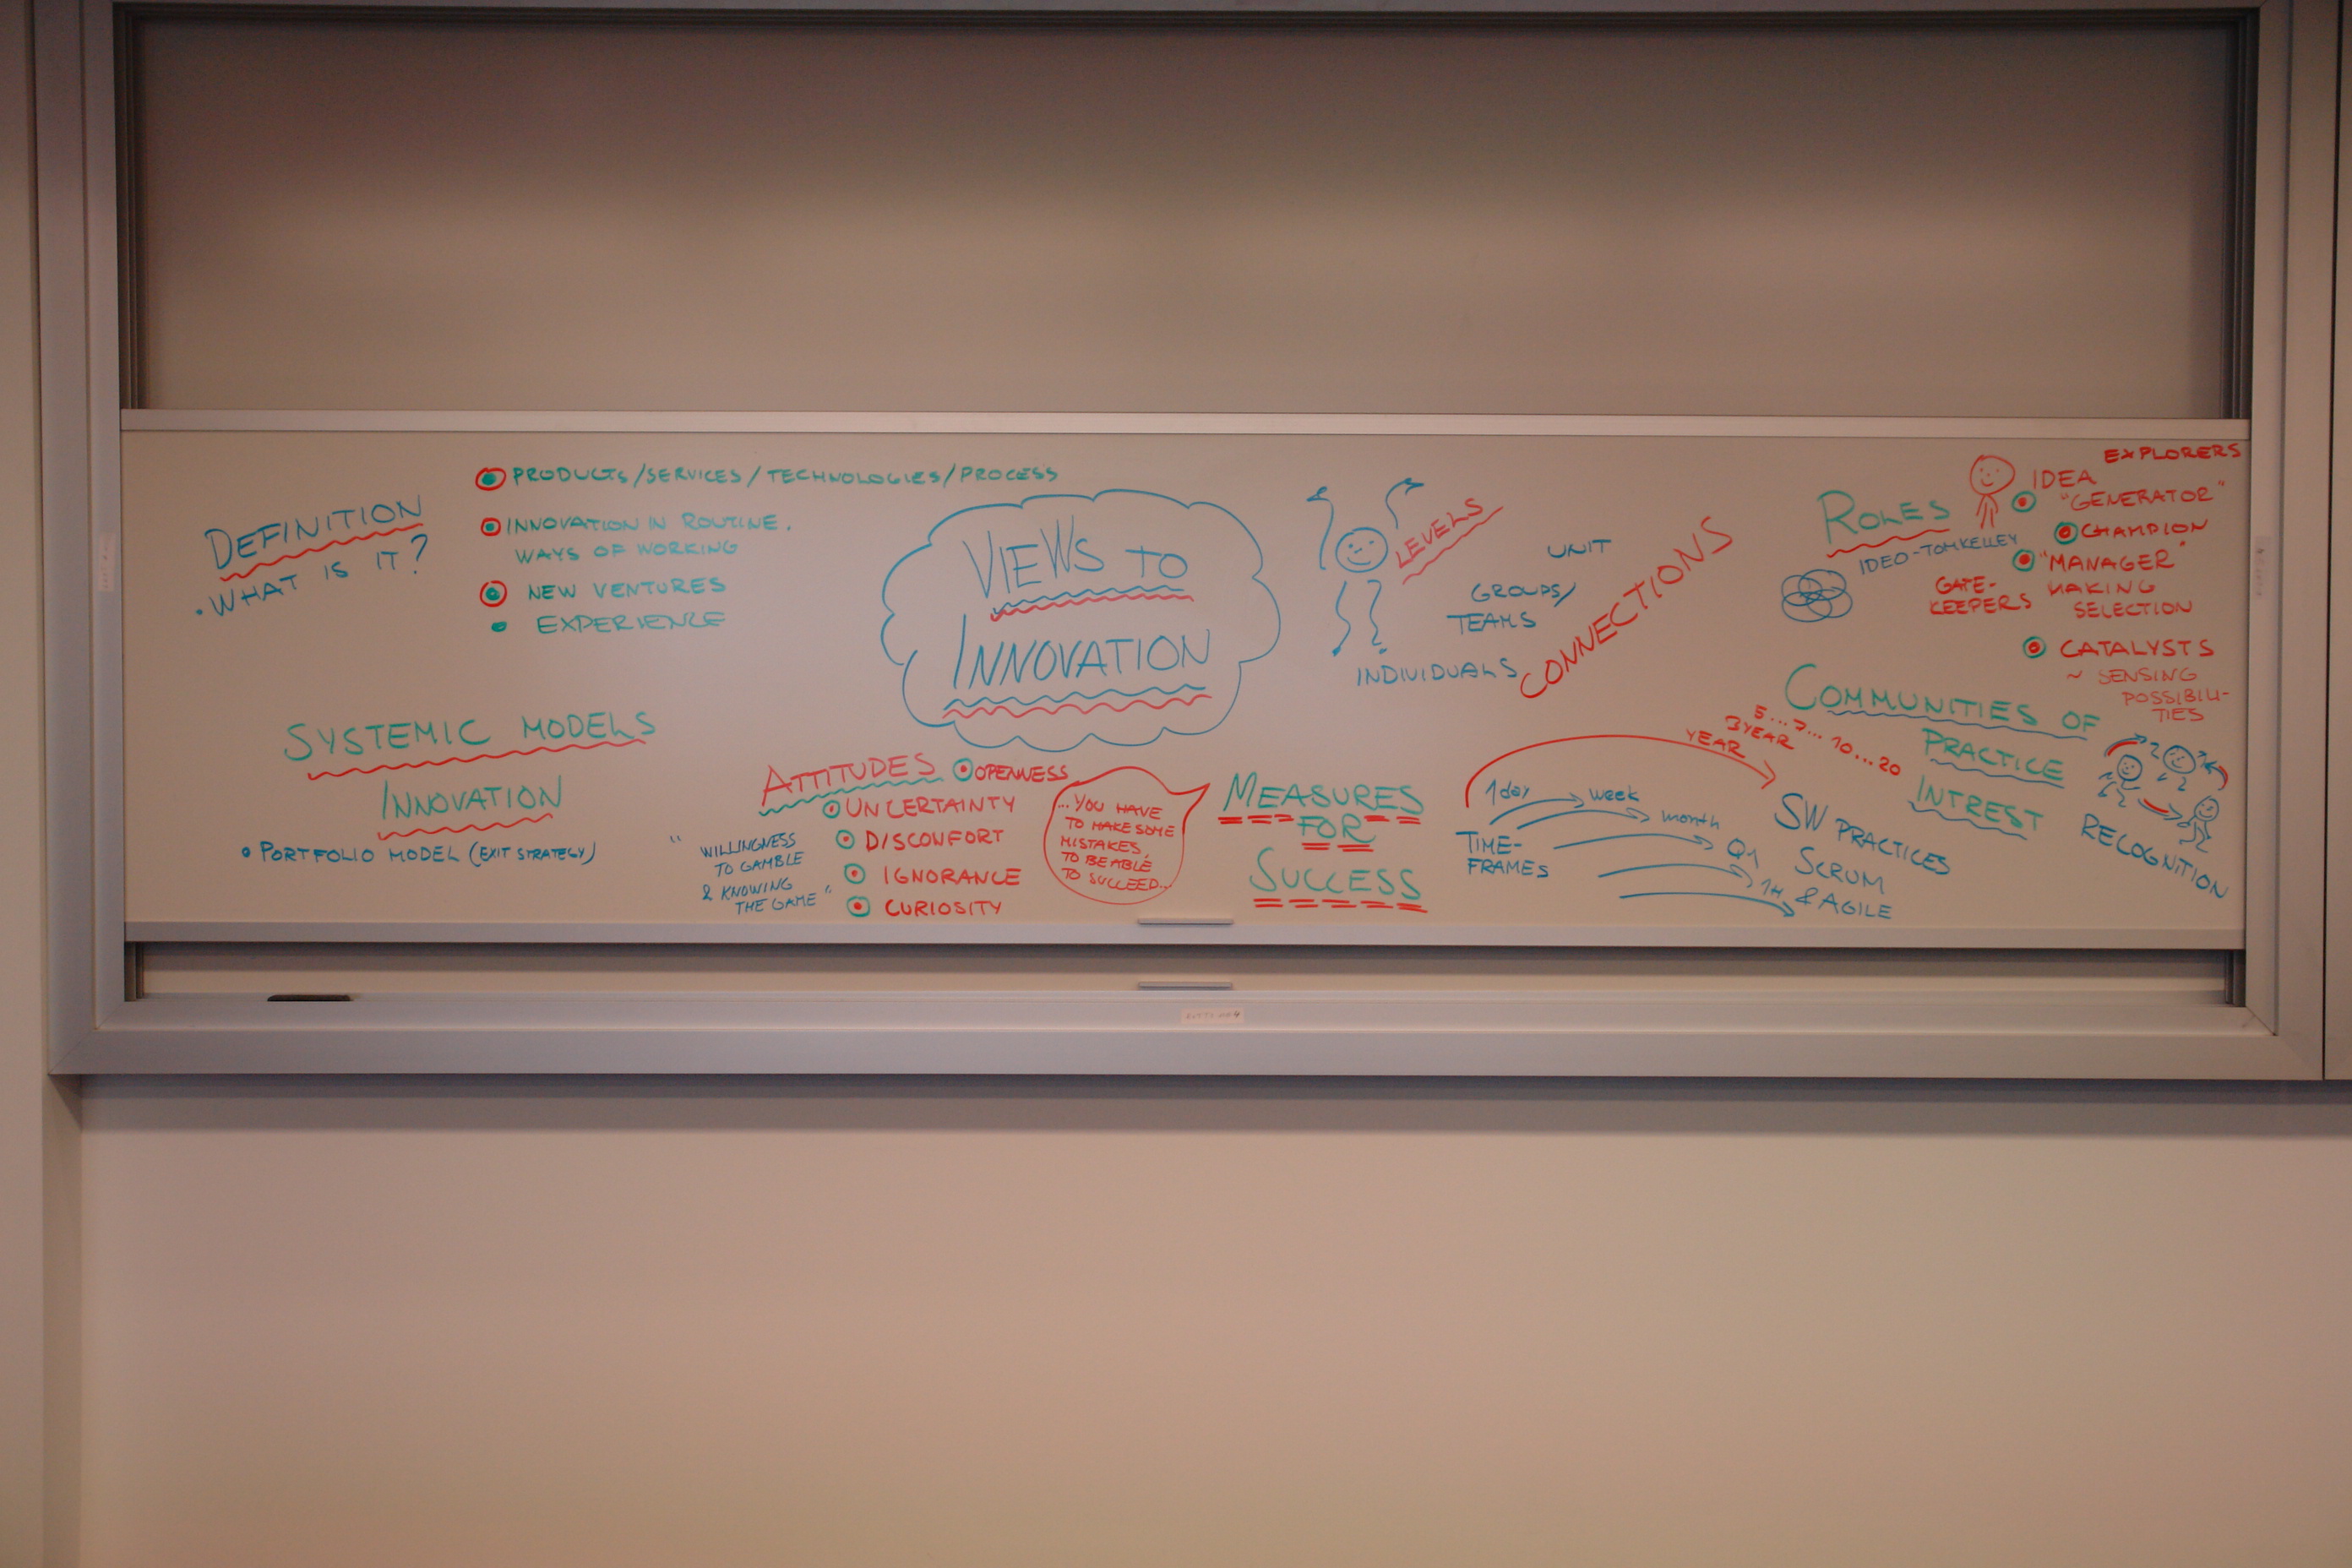 DEFINITION
• WHAT IS IT?
PRODUCTS/SERVICES/TECHNOLOGIES/PROCESS
INNOVATION IN ROUTINE.
WAYS OF WORKING
NEW VENTURES
• EXPERIENCE
VIEWS TO
INNOVATION
LEVELS
UNIT
GROUPS/
TEAMS
INDIVIDUALS
CONNECTIONS
ROLES
IDEO-TOM KELLEY
EXPLORERS
IDEA
"GENERATOR"
CHAMPION
"MANAGER"
GATE-
KEEPERS
MAKING
SELECTION
CATALYSTS
~ SENSING
POSSIBILI-
TIES
SYSTEMIC MODELS
INNOVATION
• PORTFOLIO MODEL (EXIT STRATEGY)
ATTITUDES
OPENNESS
UNCERTAINTY
DISCONFORT
IGNORANCE
CURIOSITY
" WILLINGNESS
TO GAMBLE
& KNOWING
THE GAME "
...YOU HAVE
TO MAKE SOME
MISTAKES,
TO BE ABLE
TO SUCCEED...
MEASURES
FOR
SUCCESS
TIME-
FRAMES
1day
week
month
Q1
1H
YEAR
3YEAR
5...7... 10...20
SW PRACTICES
SCRUM
& AGILE
COMMUNITIES OF
PRACTICE
INTREST
RECOGNITION